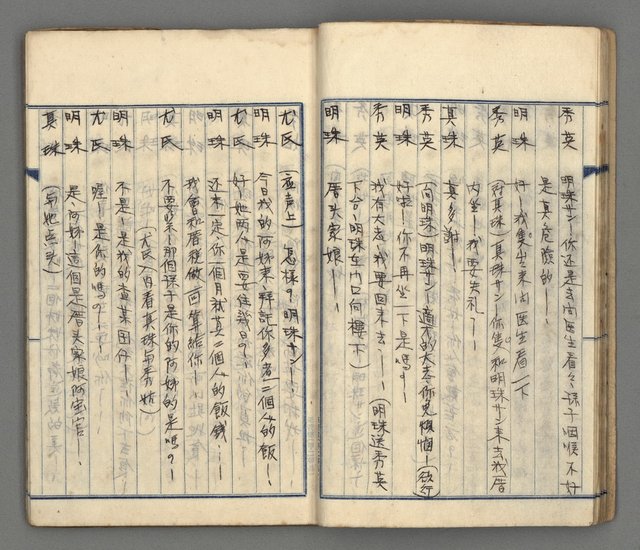 秀英　明珠サン—你还是去问医生看々、孩子咽喉不好
是真危險的—、
明珠　好—我隻出來问医生看一下
秀英　(对真珠)真珠サン你隻和明珠サン来去我厝
内坐—我要失礼了—、
真珠　真多謝—、
秀英　(向明珠)明珠サン—適才的大志你免煩惱—(欲行)
明珠　好啦—你不再坐一下是嗎？—
秀英　我有大志、我要回来去—、(明珠送秀英
下台、明珠在门口向樓下)
明珠　厝头家娘—、
尤氏　(应声上)怎樣？明珠サン—、
明珠　今日我的阿姊来、拜託你多煮二個人的飯—、
尤氏　好—她两人是要住幾日？—
明珠　还未一定、你個月就算二個人的飯錢…—
尤氏　我會和厝稅做一回算給你—、
不要紧—那個孩子是你的阿姊的是嗎？—
(尤氏入内看真珠与秀姑)
明珠　不是—是我的查某囝仔—、
尤氏　喔—是你的嗎？—
明珠　是、阿姊—這個是厝头家娘阿宝官—、
真珠　(与她点头)